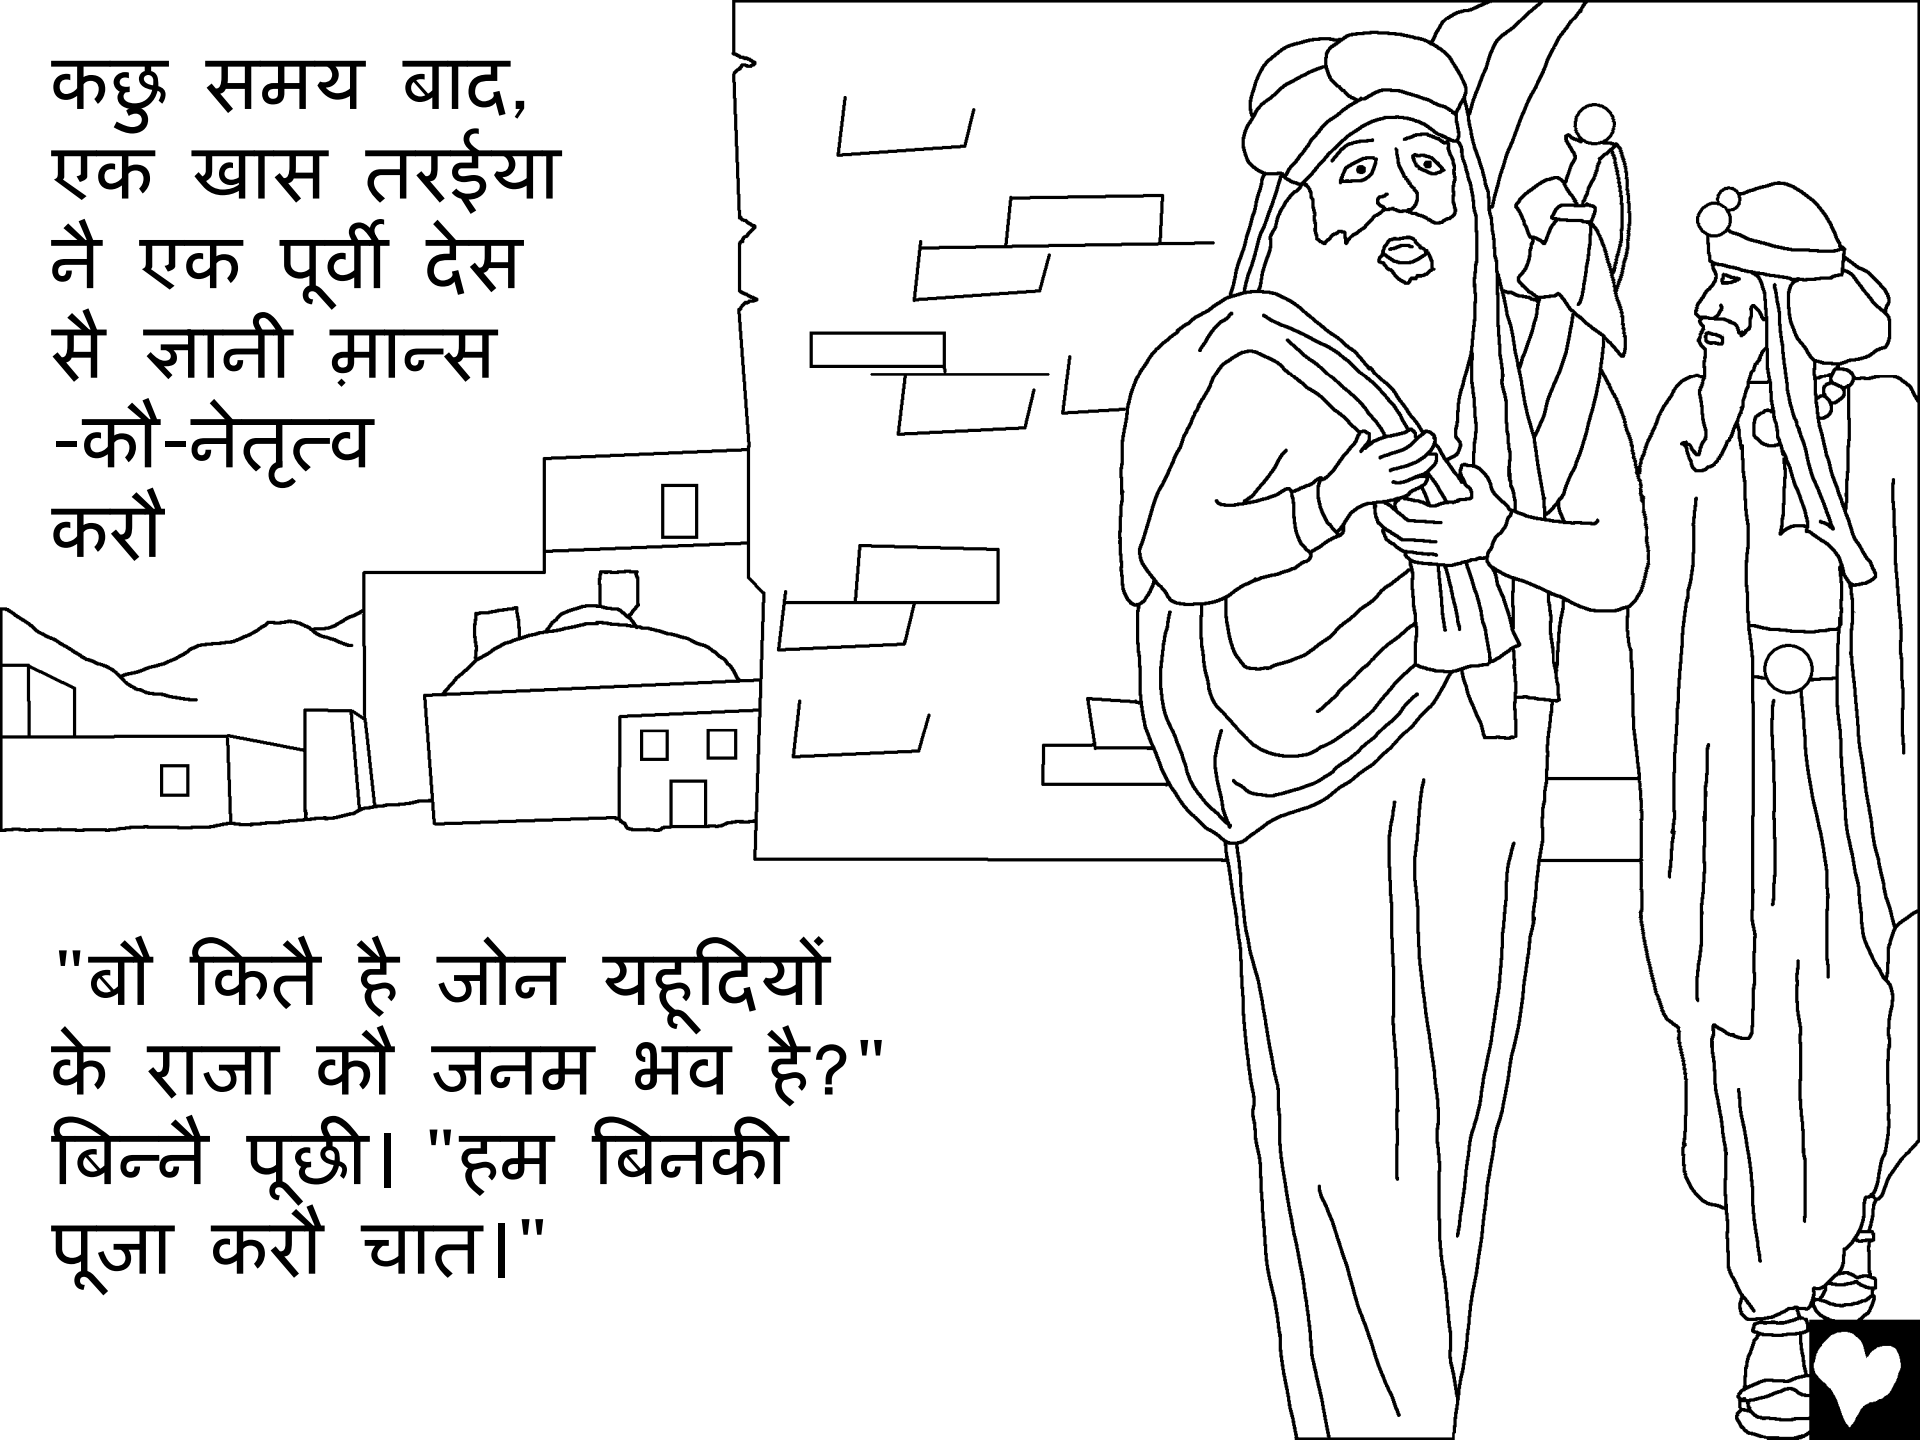 कछु समय बाद,
एक खास तरईया
नै एक पूर्वी देस
सै ज्ञानी म़ान्स
-कौ-नेतृत्व
करौ
"बौ कितै है जोन यहूदियों
के राजा कौ जनम भव है?"
बिन्नै पूछी। "हम बिनकी
पूजा करौ चात।"